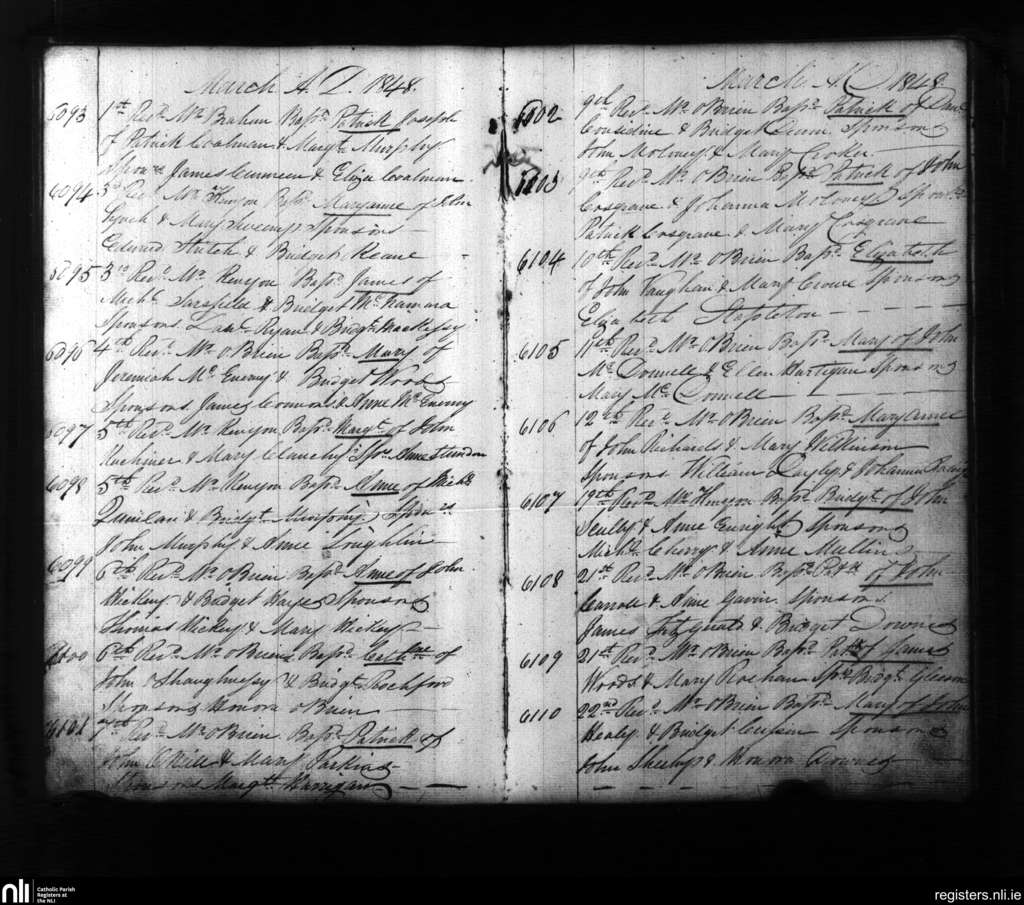 March A. D. 1848.
6093 1st Revd. Mr. Brahan Bapd. Patrick Joseph
of Patrick Coalman & Margt. Murphy
Spons James & Eliza Coalman
6094 3d Revd. Mr. Kenyon Bapd. Maryanne of John
Lynch & Mary Sponsors
Edward & Bridget Keane
6095 3rd Revd. Mr. Kenyon Bapd. James of
Michl. Sarsfield & Bridget McNamara
Sponsors Lawr. Ryan & Bridgt.
6096 4th Revd. Mr. O'Brien Bapd. Mary of
Jeremiah Mc Enerny & Bridget Woods
Sponsors James Connors & Anne Mc Enerny
6097 5th Revd. Mr. Kenyon Bapd. Margt. of John
& Mary Clanchy Spr. Anne
6098 5th Revd. Mr. Kenyon Bapd. Anne of Michl.
Quinlan & Bridgt. Murphy
John Murphy & Anne Loughlin
6099 6th Revd. Mr. O'Brien Bapd. Anne of John
Hickey & Bridget Hayes Sponsors
Thomas Hickey & Mary Hickey
6100 6th Revd. Mr. O'Brien Bapd. of
John O'Shaughnessy & Bridgt. Rochford
Sponsors Honora O'Brien
6101 7th Revd. Mr. O'Brien Bapd. Patrick of
John & Mary Perkins
Sponsors Margt. Harrigan
March A. D. 1848
6102 9th Revd. Mr. O'Brien Bapd. Patrick of
Considine & Bridget Sponsors
John Moloney & Mary Croker
6103 9th Revd. Mr. O'Brien Bapd. Patrick of John
Cosgrave & Johanna Moloney Sponrs.
Patrick Cosgrave & Mary Cosgrave
6104 10th Revd. Mr. O'Brien Bapd. Elizabeth
of John Vaughan & Mary Crowe Sponsors
Elizabeth Stapleton
6105 11th Revd. Mr. O'Brien Bapd. Mary of John
Mc Donnell & Ellen Hartigan Sponsors
Mary Mc Donnell
6106 12th Revd. Mr. O'Brien Bapd. Maryanne
of John Richards & Mary Wilkinson
Sponsors William & Johanna
6107 19th Revd. Mr. Kenyon Bapd. Bridgt. of John
& Anne Enright Sponsors
Michl. Cherry & Anne Mullins
6108 21st Revd. Mr. O'Brien Bapd. Patk. of John
Carroll & Anne Gavin Sponsors
James Fitzgerald & Bridget Downes
6109 21st Revd. Mr. O'Brien Bapd. Patk. of James
Woods & Mary Spr. Bridgt. Gleeson
6110 22nd Revd. Mr. O'Brien Bapd. Mary of John
Healy & Bridget Sponsors
John Sheehy & Honora Downes
nli
Catholic Parish
Registers at
the NLI
registers.nli.ie